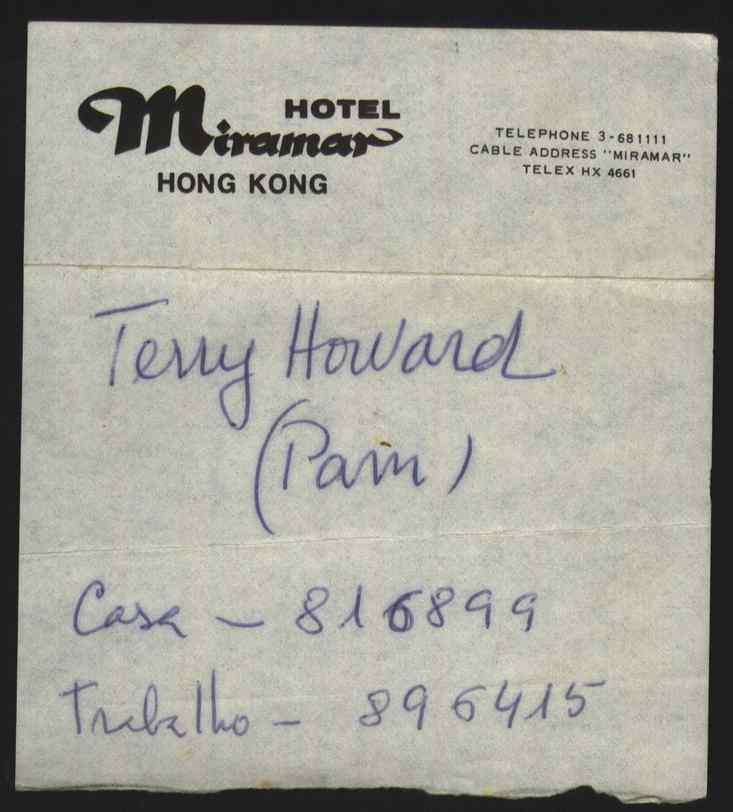 HOTEL
Miramar
HONG KONG
TELEPHONE 3-681111
CABLE ADDRESS "MIRAMAR"
TELEX HX 4661
Terry Howard
(Pam)
Casa - 816899
Trabalho - 896415